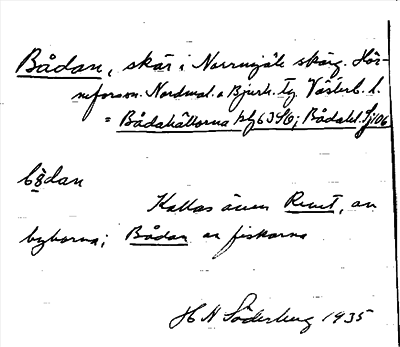 Bådan, skär i Norrmjöle skärg. Hör-
neforsom. Nordmal. o Bjurh. tg. Västerb. l.
= Bådahällorna kbl 63 Sö; Bådahl. Sj 106
bådan
Kallas även Revet, av
byborna; Bådan av fiskarna
H N Söderberg 1935